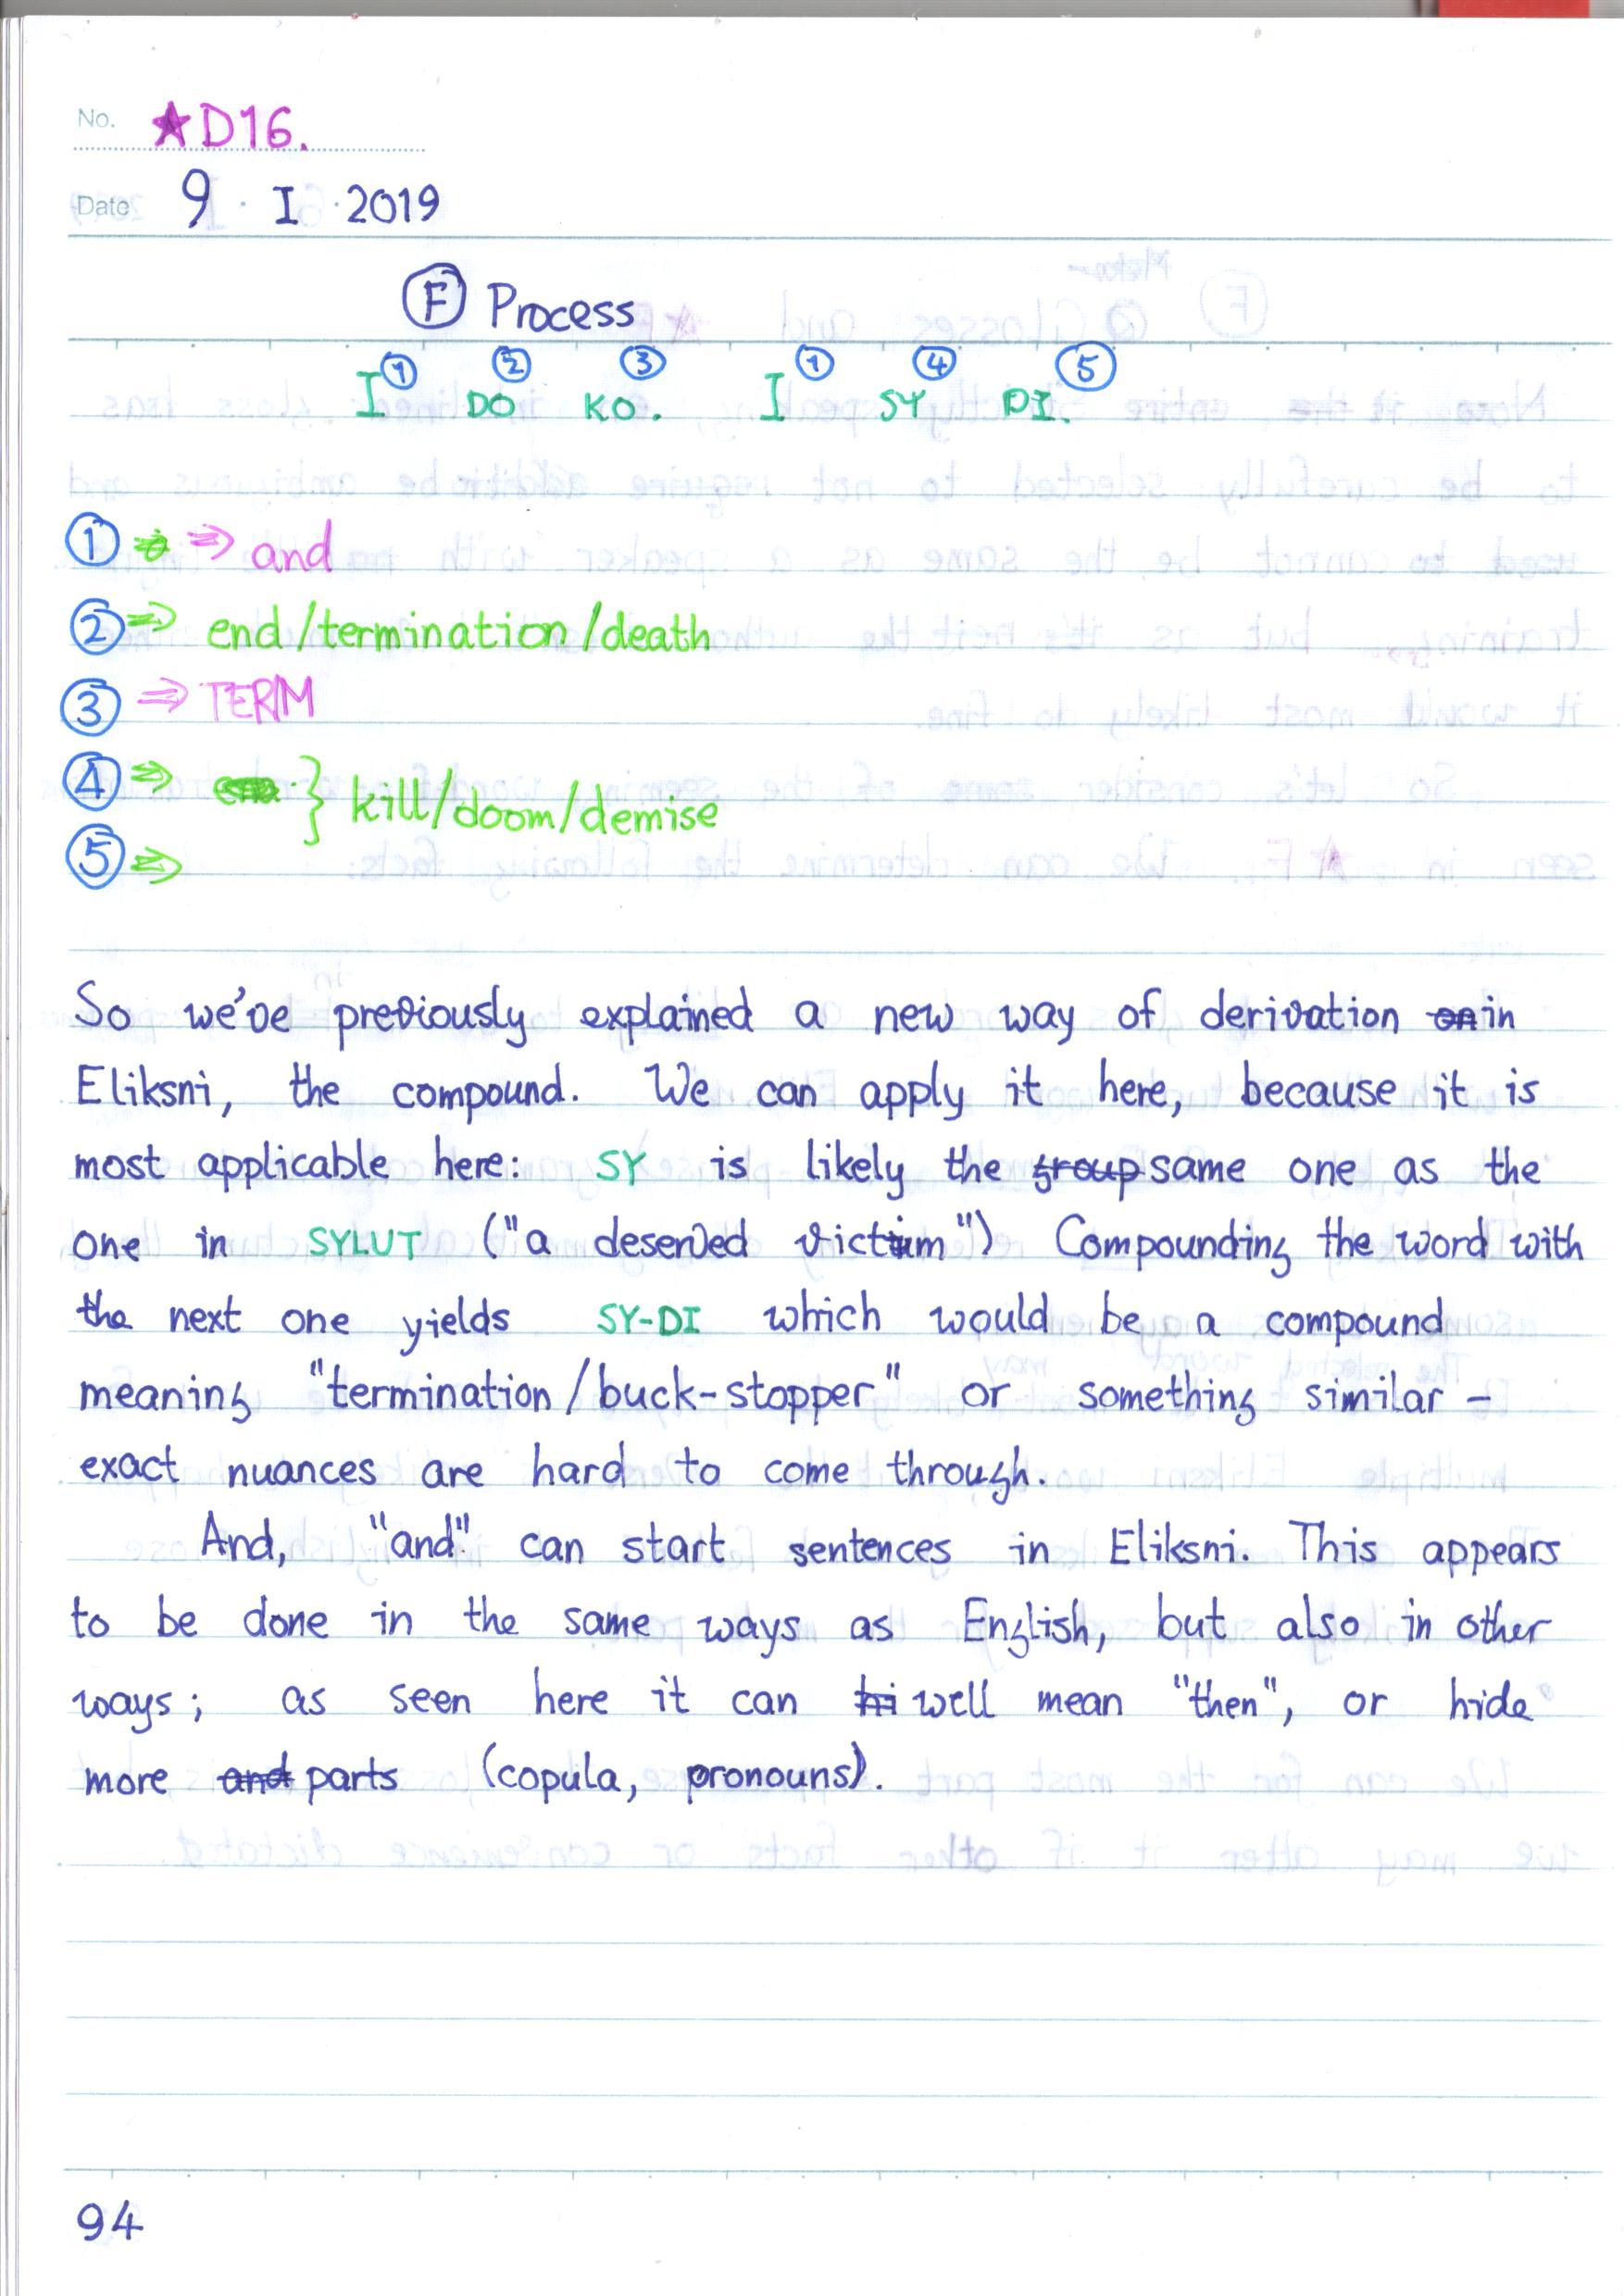 No. ★D16.
Date 9 · I · 2019
Ⓕ Process
① ② ③ ① ④ ⑤
I DO KO. I SY DI.
① ⇒ and
② ⇒ end/termination/death
③ ⇒ TERM
④ ⇒ } kill/doom/demise
⑤ ⇒
So we've previously explained a new way of derivation on in
Eliksni, the compound. We can apply it here, because it is
most applicable here: SY is likely the group same one as the
one in SYLUT ("a deserved victim") Compounding the word with
the next one yields SY-DI which would be a compound
meaning "termination/buck-stopper" or something similar –
exact nuances are hard to come through.
And, "and" can start sentences in Eliksni. This appears
to be done in the same ways as English, but also in other
ways; as seen here it can well mean "then", or hide
more and parts (copula, pronouns).
94